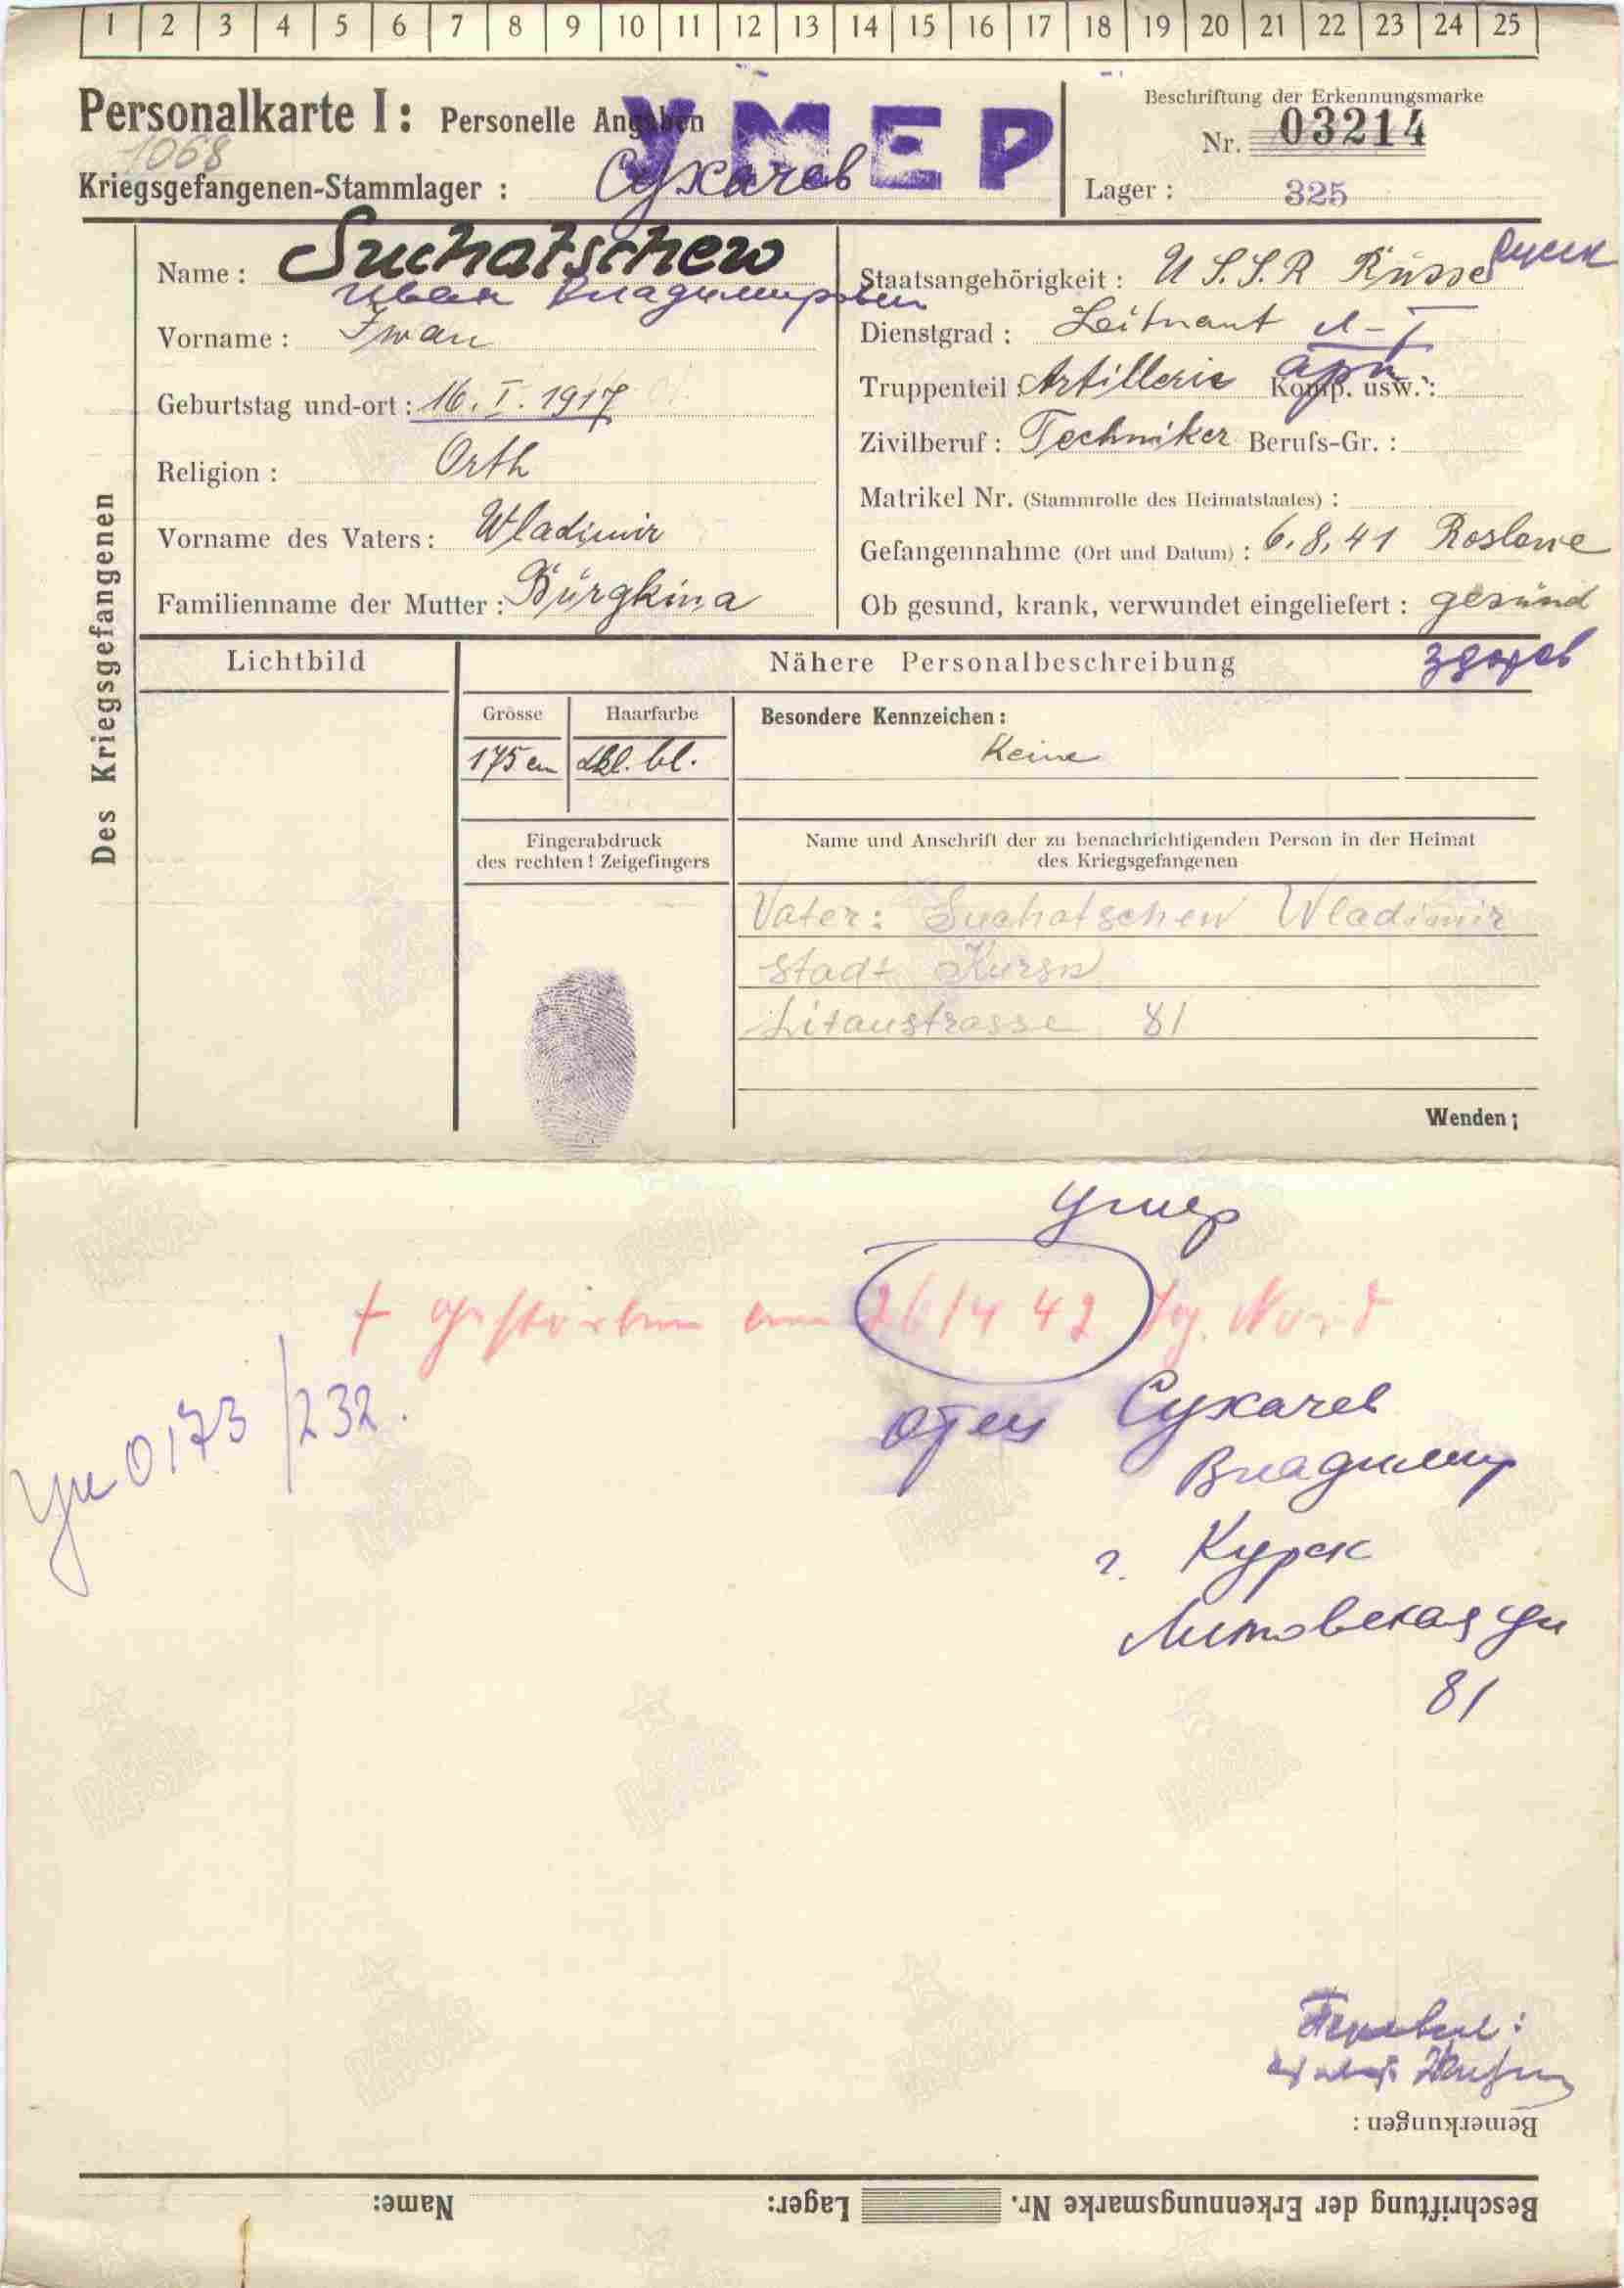 1 2 3 4 5 6 7 8 9 10 11 12 13 14 15 16 17 18 19 20 21 22 23 24 25
Personalkarte I: Personelle Angaben
УМЕР
Beschriftung der Erkennungsmarke
Nr. 03214
1068
Kriegsgefangenen-Stammlager: Сухачев
Lager: 325
Des Kriegsgefangenen
Name: Suchatschew
Иван Владимирович
Vorname: Iwan
Geburtstag und-ort: 16. I. 1917
Religion: Orth
Vorname des Vaters: Wladimir
Familienname der Mutter: Bürgkina
Staatsangehörigkeit: U.S.S.R Rüsse русск
Dienstgrad: Leitnant л-т
Truppenteil: Artillerie Komp. usw.: арт
Zivilberuf: Techniker Berufs-Gr.:
Matrikel Nr. (Stammrolle des Heimatstaates):
Gefangennahme (Ort und Datum): 6.8.41 Roslowe
Ob gesund, krank, verwundet eingeliefert: gesünd
здоров
Lichtbild
Nähere Personalbeschreibung
Grösse
Haarfarbe
Besondere Kennzeichen:
175 cm
dkl. bl.
Keine
Fingerabdruck
des rechten! Zeigefingers
Name und Anschrift der zu benachrichtigenden Person in der Heimat
des Kriegsgefangenen
Vater: Suchatschew Wladimir
Stadt Kursk
Litaustrasse 81
Wenden;
умер
+ gestorben am 26/4 42 Lg. Nord
0173/232.
отец Сухачев
Владимир
г. Курск
Литовская ул
81
Перевел:
Bemerkungen:
Beschriftung der Erkennungsmarke Nr. Lager: Name: